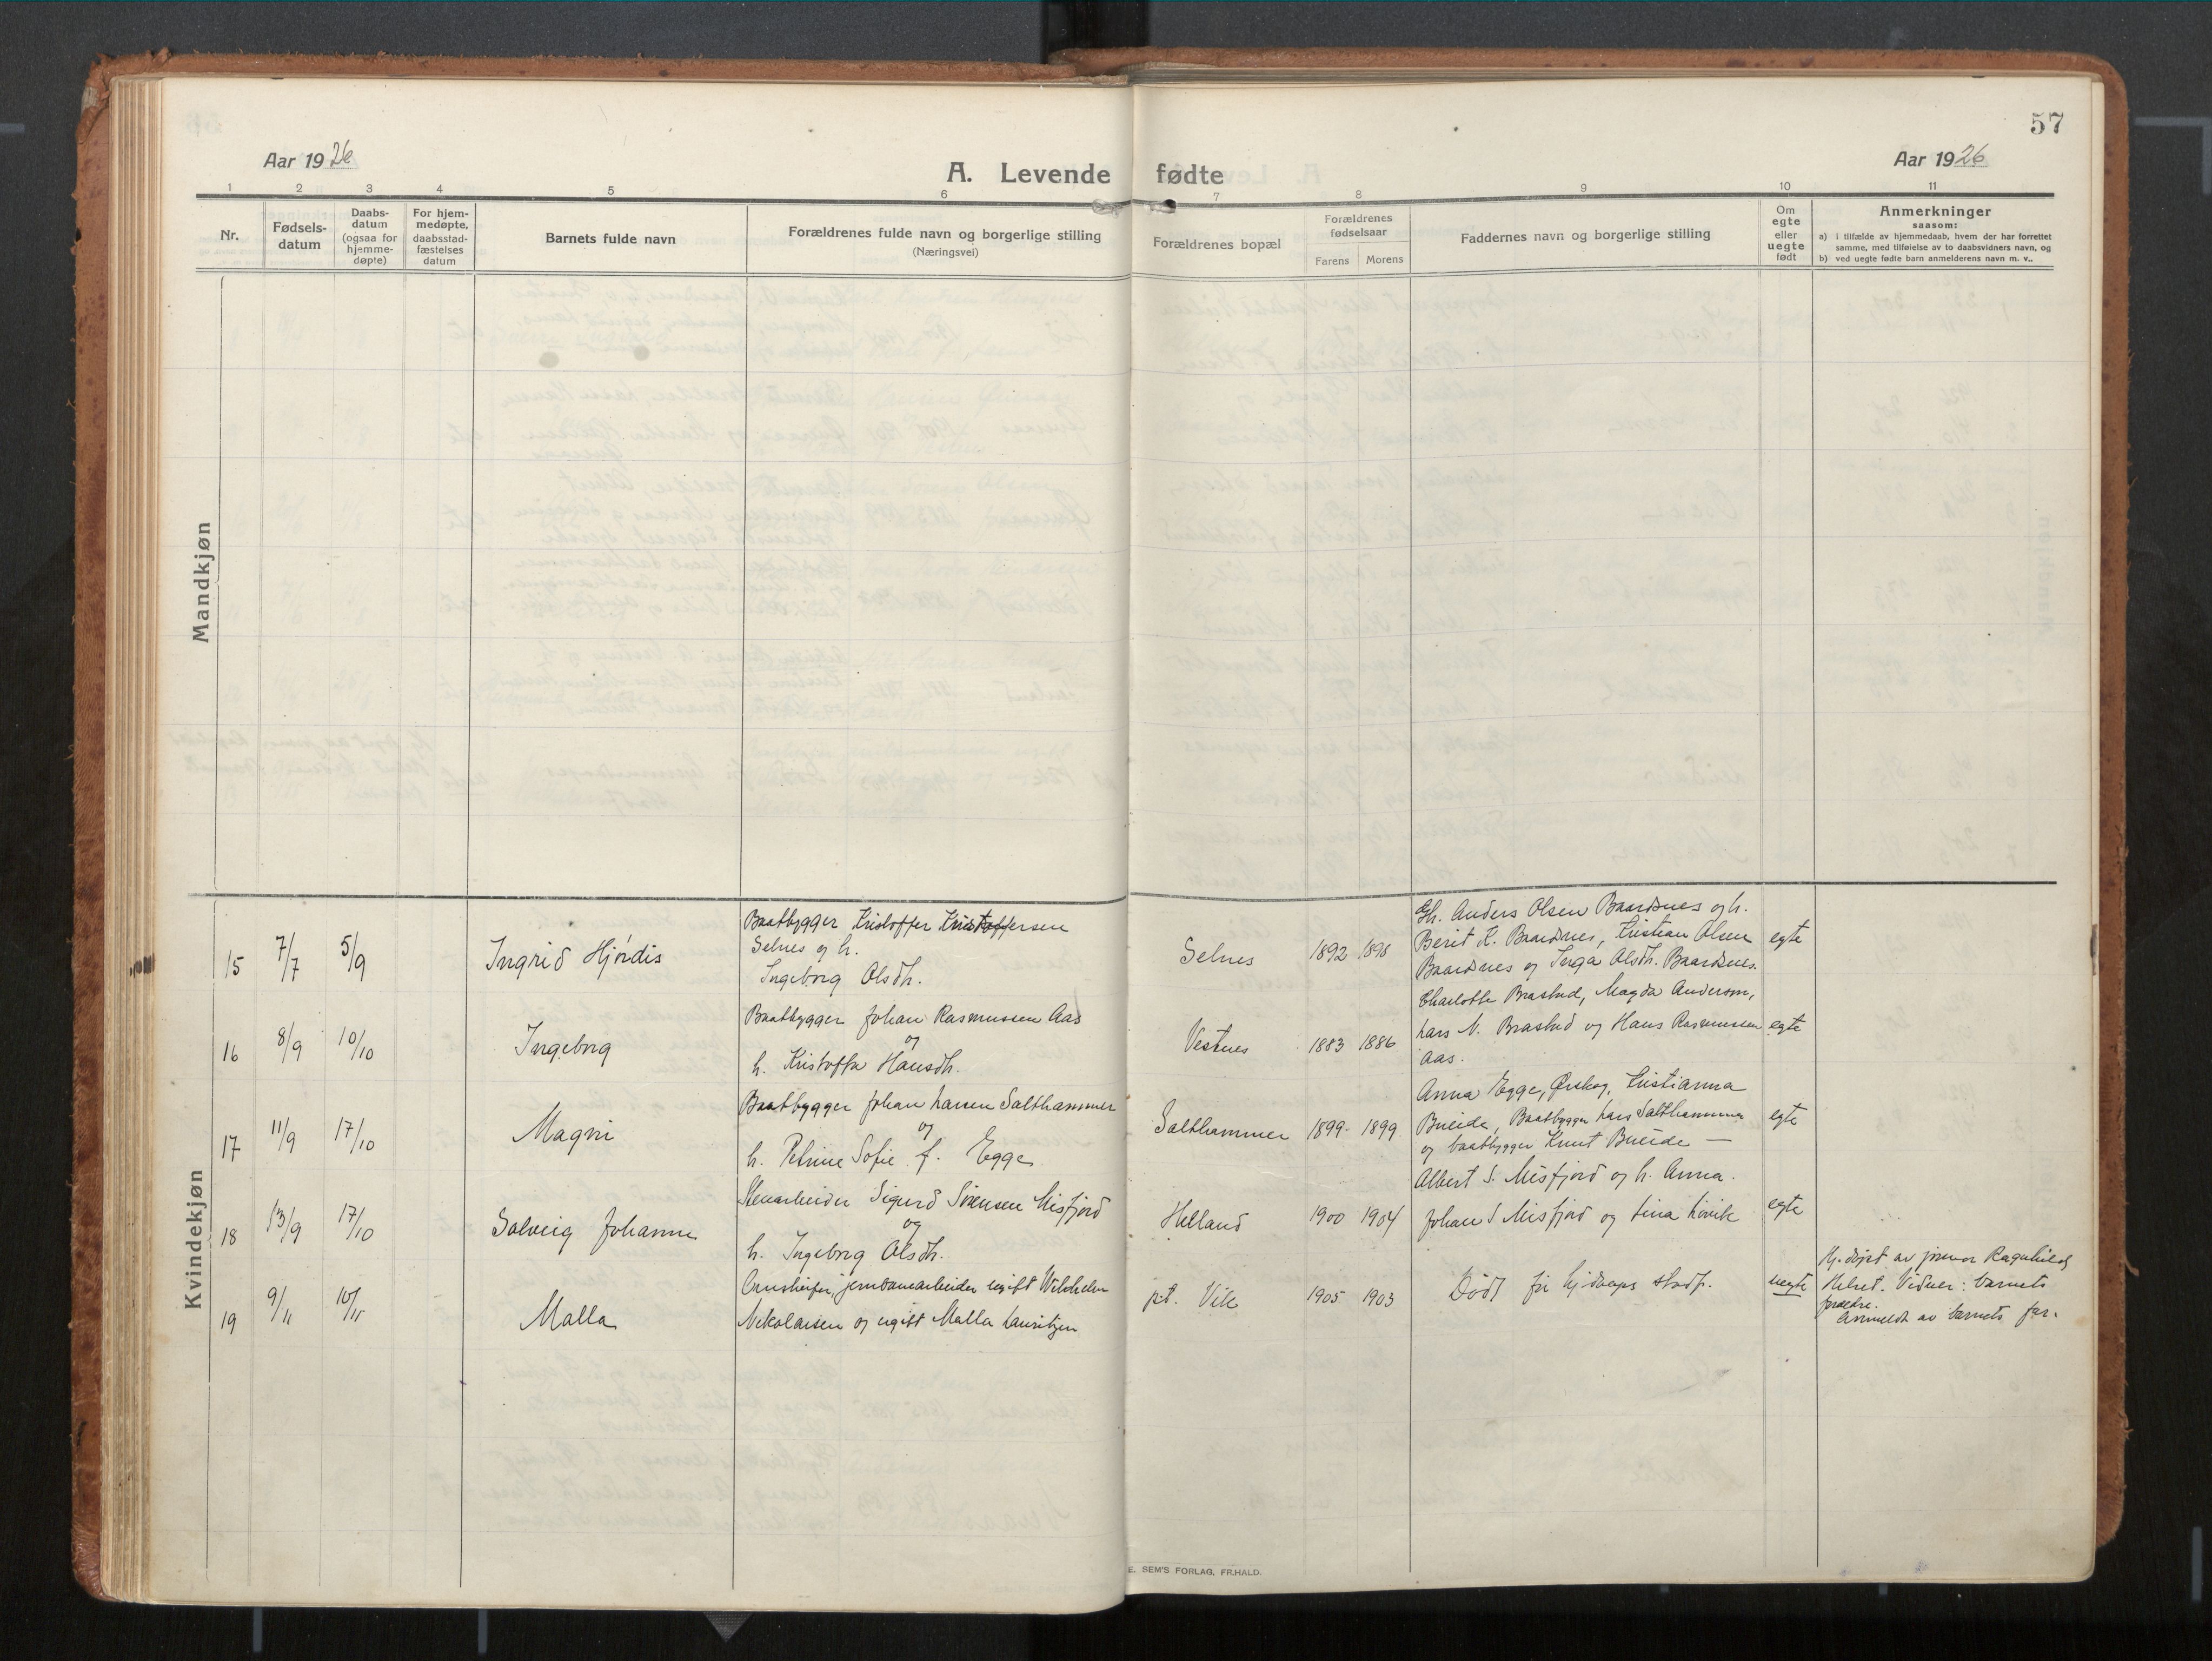 57
Aar 1926
Aar 1926
A. Levende fødte
1 2 3 4 5 6 7 8 9 10 11
Nr.
Fødsels-
datum
Daabs-
datum
(ogsaa for
hjemme-
døpte)
For hjem-
medøpte,
daabsstad-
fæstelses
datum
Barnets fulde navn
Forældrenes fulde navn og borgerlige stilling
(Næringsvei)
Forældrenes bopæl
Forældrenes
fødselsaar
Farens Morens
Faddernes navn og borgerlige stilling
Om
egte
eller
uegte
født
Anmerkninger
saasom:
a) i tilfælde av hjemmedaab, hvem der har forrettet
samme, med tilføielse av to daabsvidners navn, og
b) ved uegte fødte barn anmelderens navn m. v..
Mandkjøn
Kvindekjøn
15 7/7 5/9 Ingrid Hjórdis
Baatbygger Kristoffer Kristoffersen
Selnes og h.
Ingeborg Olsdh.
Selnes 1892 1898
Gh. Anders Olsen Baardsnes og h.
Berit K. Baardsnes, Kristian Olsen
Baardsnes og Inga Olsdh. Baardsnes.
egte
16 8/9 10/10 Ingeborg
Baatbygger Johan Rasmussen Aas
og
h. Kristoffa Hansdh.
Vestnes 1883 1886
Charlotte Brastad, Magda Anderson,
Lars N. Brastad og Hans Rasmussen
Aas.
egte
17 11/9 17/10 Magni
Baatbygger Johan Larsen Salthammer
og
h. Petrine Sofie f. Egge
Salthammer 1899 1899
Anna Egge, Ørskog, Kristianna
Bueide, Baatbygger Lars Salthammer
og baatbygger Knut Bueide —
egte
18 13/9 17/10 Solveig Johanne
Stenarbeider Sigurd Sivensen Misfjord
og
h. Ingeborg Olsdh.
Helland 1900 1904
Albert S. Misfjord og h. Anna.
Johan S Misfjord og Lina Lövik
egte
19 9/11 10/11 Malla
jernbanearbeider ugift Wilhelm
Nikolaisen og ugift Malla Lauritzen
pt. Vik 1905 1903
Död før hjdaaps stadf.
uegte
Hj. døpt av jormor Ragnhild
Helset. Vidner: barnets
forældre.
Anmeldt av barnets far.
E. SEM'S FORLAG, FR.HALD.